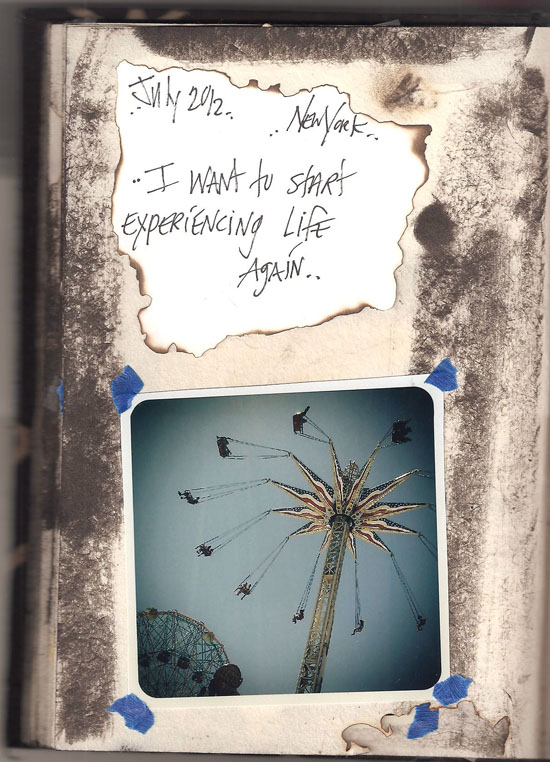 ..July 2012..
..New York..
..I WANT to START
EXPERIENCING LIFE
AGAIN..